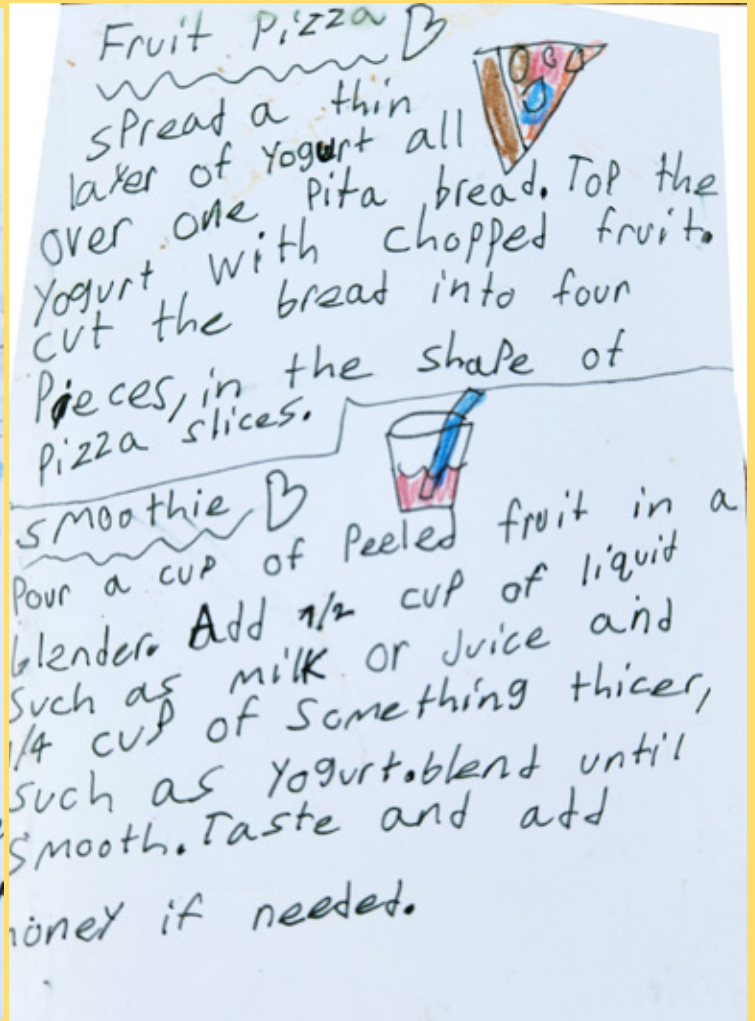 Fruit Pizza B
spread a thin
layer of Yogurt all
over one Pita bread. Top the
Yogurt with chopped fruit.
cut the bread into four
Pieces, in the shape of
Pizza slices.
smoothie B
Pour a cup of Peeled fruit in a
blender. Add 1/2 cup of liquid
Such as milk or Juice and
1/4 cup of Something thicer,
Such as Yogurt.blend until
Smooth. Taste and add
honey if needed.